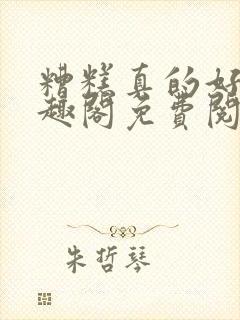 糟糕真的好
趣阁免费阅
朱哲琴